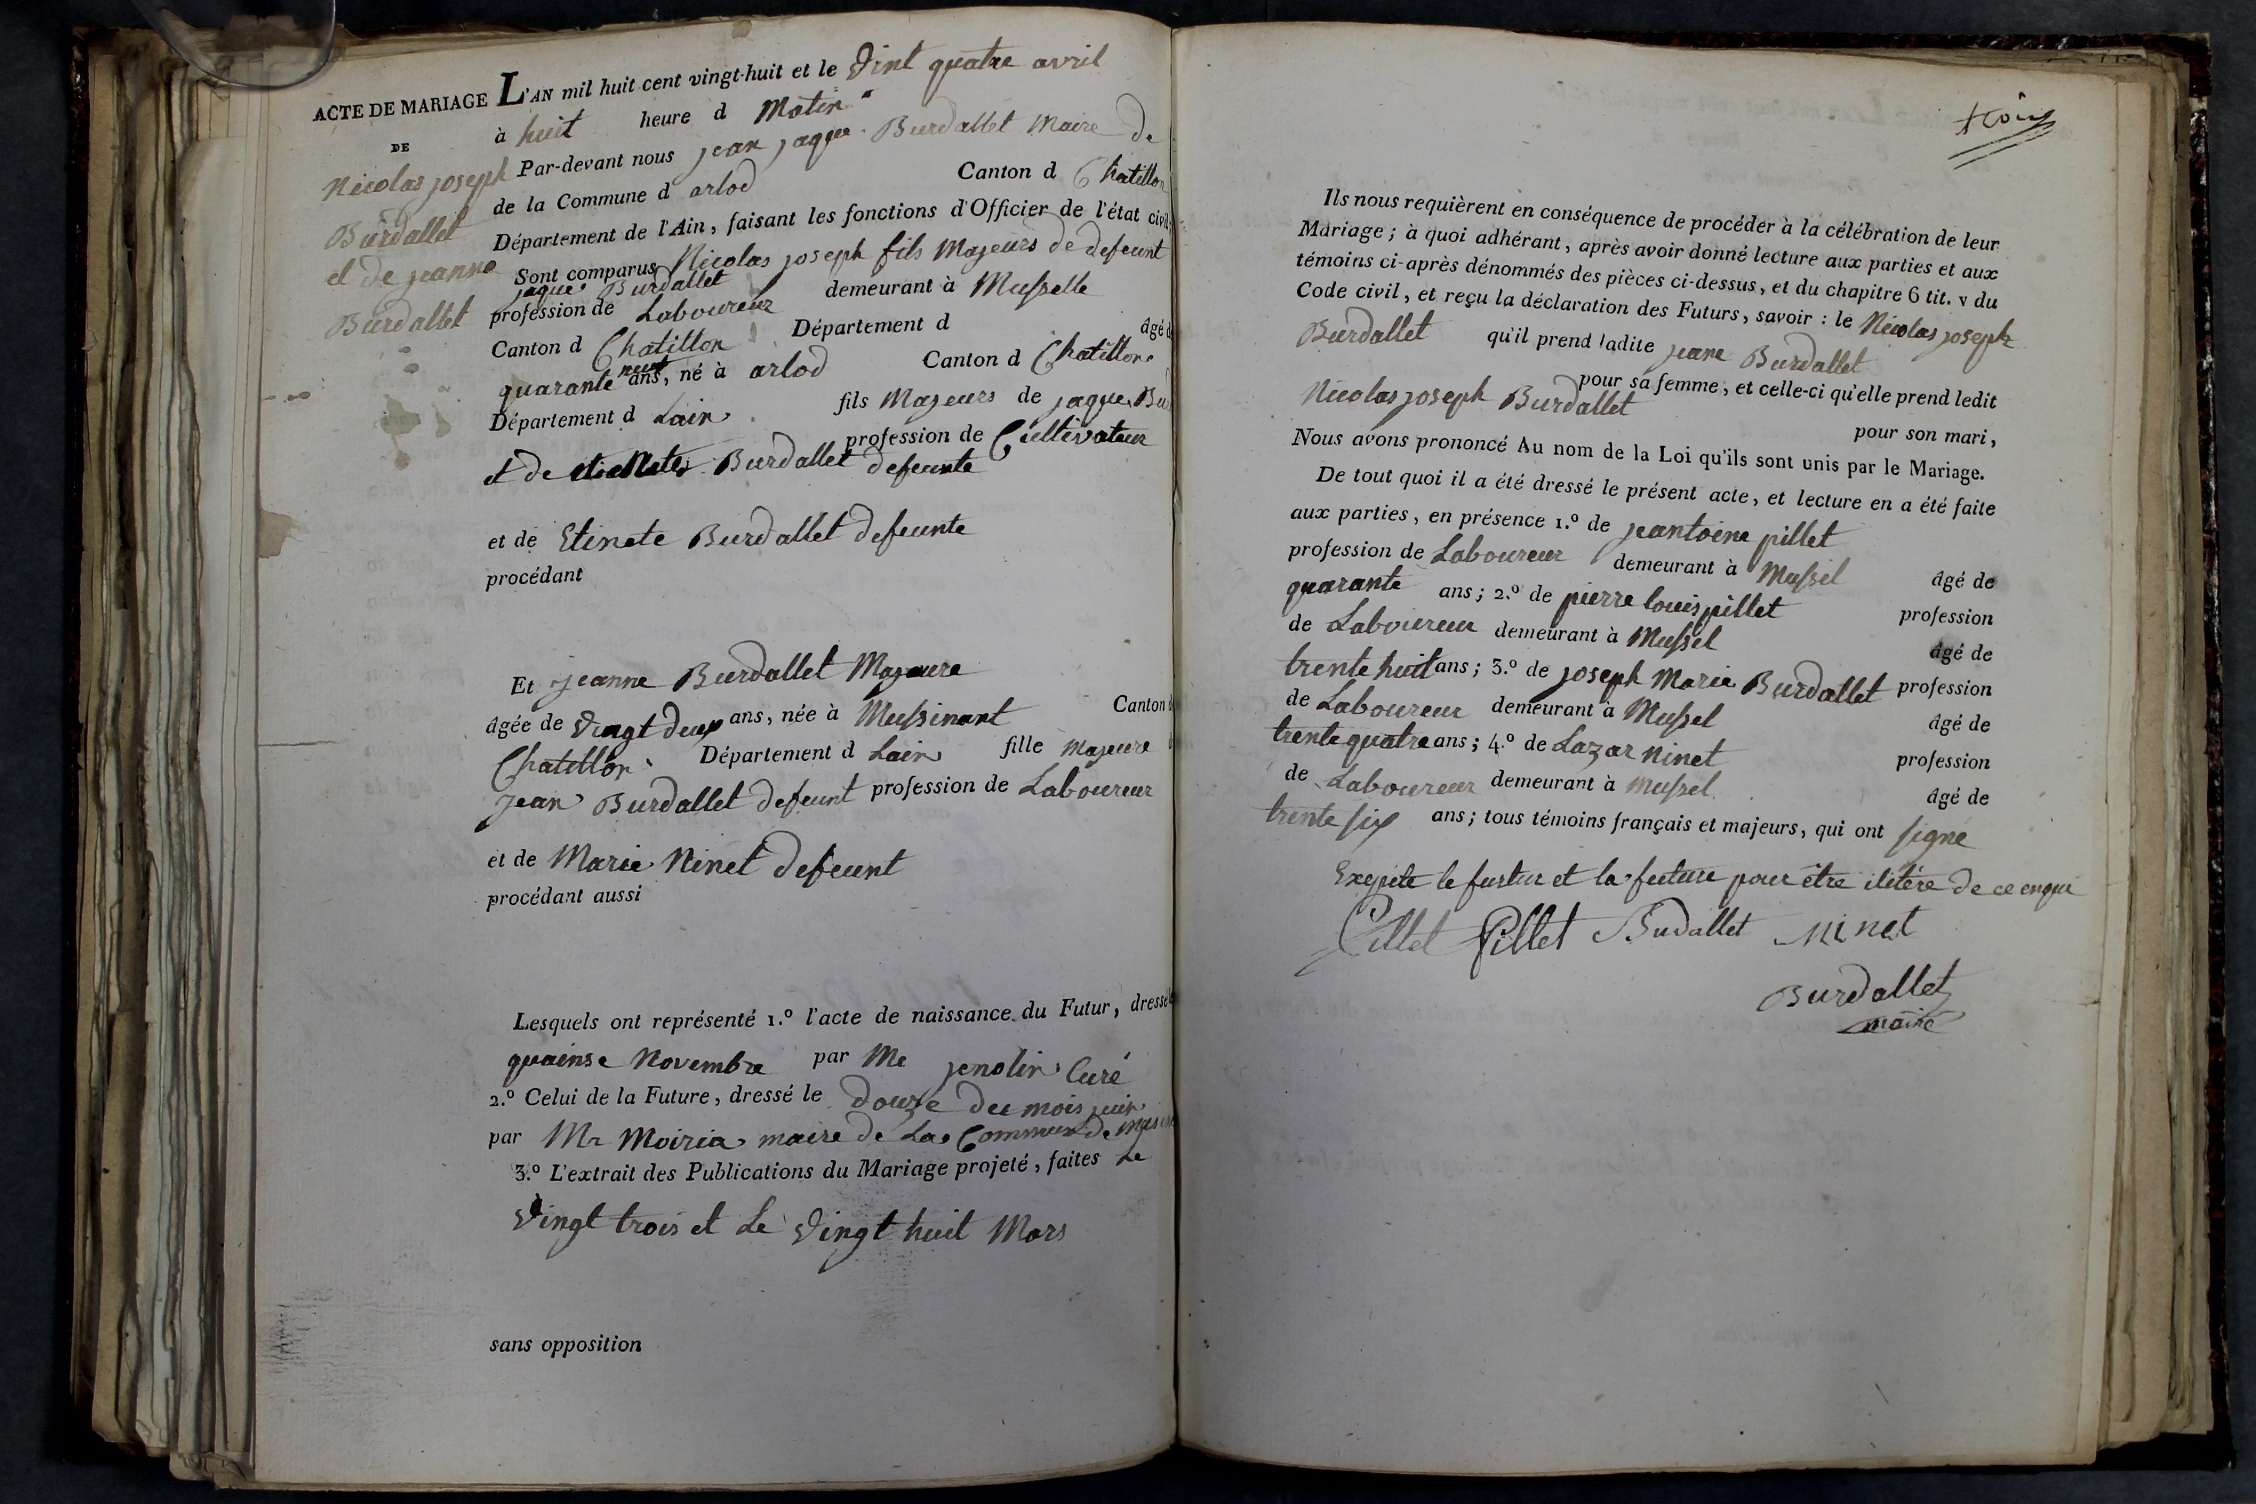 ACTE DE MARIAGE
DE
Nicolas joseph
Burdallet
et de jeanne
Burdallet
L'AN mil huit cent vingt-huit et le vint quatre avril
à huit heure d Matin
Par-devant nous jean jaque Burdallet Maire de
de la Commune d arlod Canton d Chatillon
Département de l'Ain, faisant les fonctions d'Officier de l'état civil
Sont comparus Nicolas joseph fils Majeurs de defeunt
jaque Burdallet
profession de Laboureur demeurant à Musselle
Canton d Chatillon Département d âgé d
quarante neuf ans, né à arlod Canton d Chatillon
Département d Lain fils Majeurs de jaque Bur
profession de Cultivateur
et de Burdallet defeunte
et de Etinete Burdallet defeunte
procédant
Et jeanne Burdallet Majeure
âgée de vingt deux ans, née à Mussinant Canton d
Chatillon Département d Lain fille majeure
jean Burdallet defeunt profession de Laboureur
et de Marie Ninet defeunt
procédant aussi
Lesquels ont représenté 1.º l'acte de naissance du Futur, dressé
quainse Novembre par Me jenolin Curé
2.º Celui de la Future, dressé le douze du mois juin
par Mr Moiria maire de La Commune de
3.º L'extrait des Publications du Mariage projeté, faites Le
vingt trois et Le vingt huit Mars
sans opposition
Ils nous requièrent en conséquence de procéder à la célébration de leur
Mariage; à quoi adhérant, après avoir donné lecture aux parties et aux
témoins ci-après dénommés des pièces ci-dessus, et du chapitre 6 tit. v du
Code civil, et reçu la déclaration des Futurs, savoir : le Nicolas joseph
Burdallet qu'il prend ladite jeane Burdallet
pour sa femme, et celle-ci qu'elle prend ledit
Nicolas joseph Burdallet pour son mari,
Nous avons prononcé Au nom de la Loi qu'ils sont unis par le Mariage.
De tout quoi il a été dressé le présent acte, et lecture en a été faite
aux parties, en présence 1.º de jeantoine pillet
profession de Laboureur demeurant à Mussel âgé de
quarante ans; 2.º de pierre louis pillet profession
de Laboureur demeurant à Mussel âgé de
trente huit ans; 3.º de joseph Marie Burdallet profession
de Laboureur demeurant à Mussel âgé de
trente quatre ans; 4.º de Lazar Ninet profession
de Laboureur demeurant à Mussel âgé de
trente six ans; tous témoins français et majeurs, qui ont signé
Exepte le furtur et la future pour être ilitére de ce enqui
Pillet Pillet Budallet Ninet
Burdallet
maire